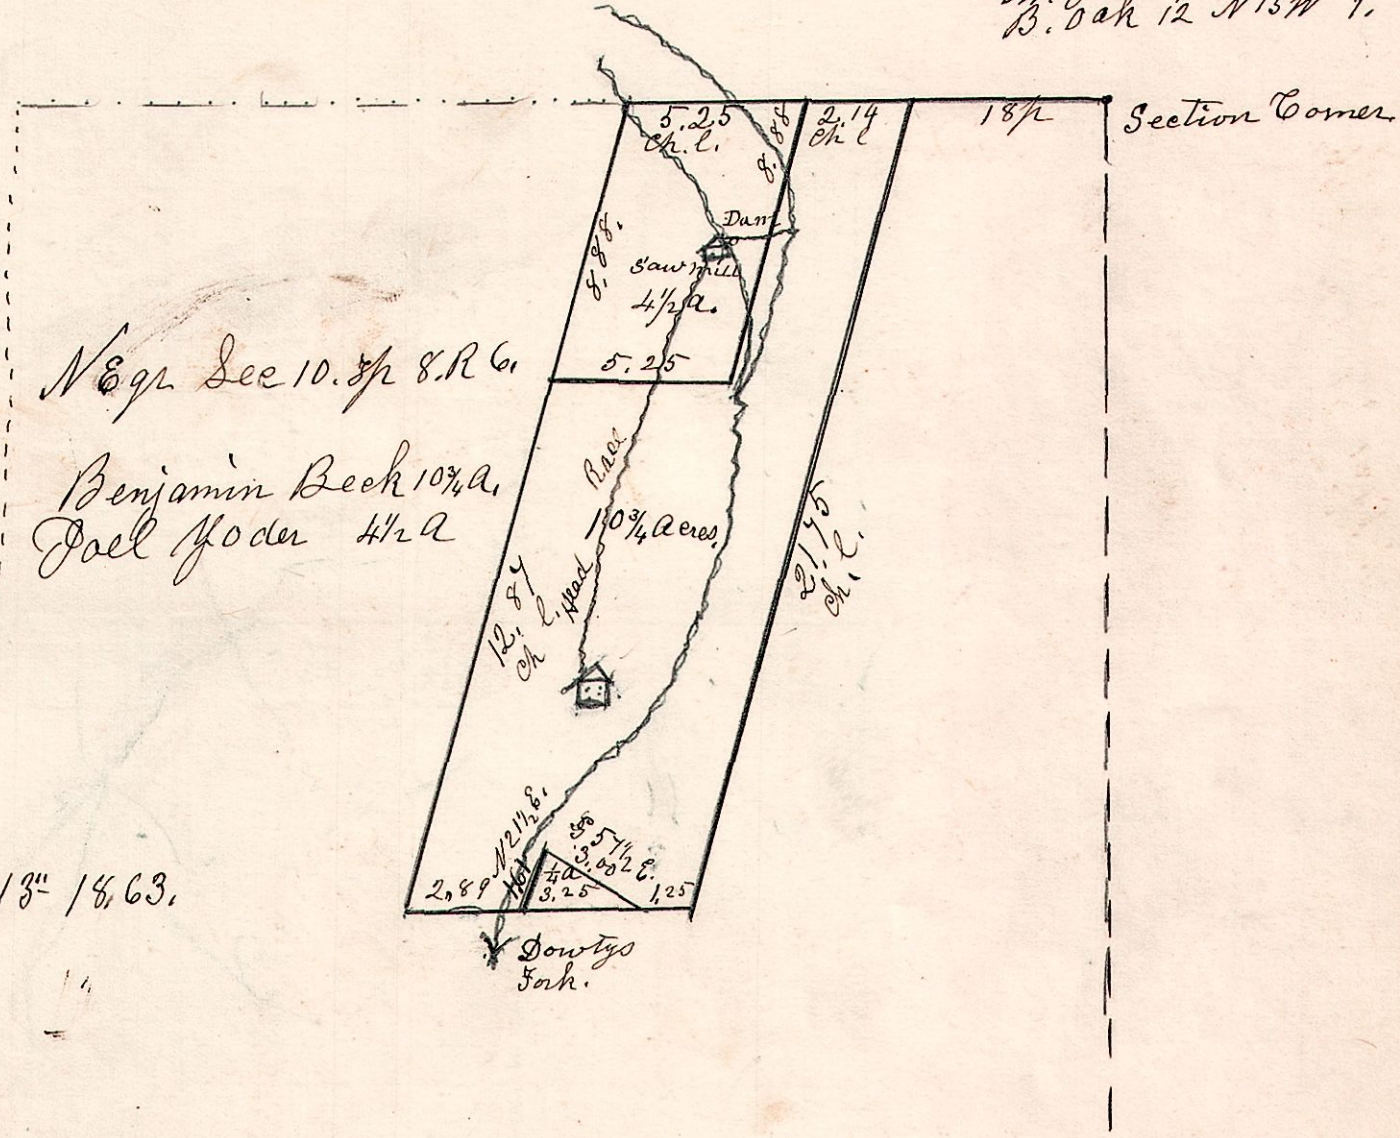 B. Oak 12 N 13 W
5.25
Ch. l.
8.88
2.14
Ch l
18p
Section Corner
Dam
8.88.
Saw mill
4½ a.
5.25
N E qr Sec 10. Tp 8. R 6.
Benjamin Beck 10¾ A.
Joel Yoder 4½ A
Head Race
10¾ Acres.
21.75
Ch. l.
12.87
Ch l.
N 21½ E.
S 57½ E.
3.00
¼ a.
2,89
3.25
1,25
13" 18,63.
Dowtys
Fork.